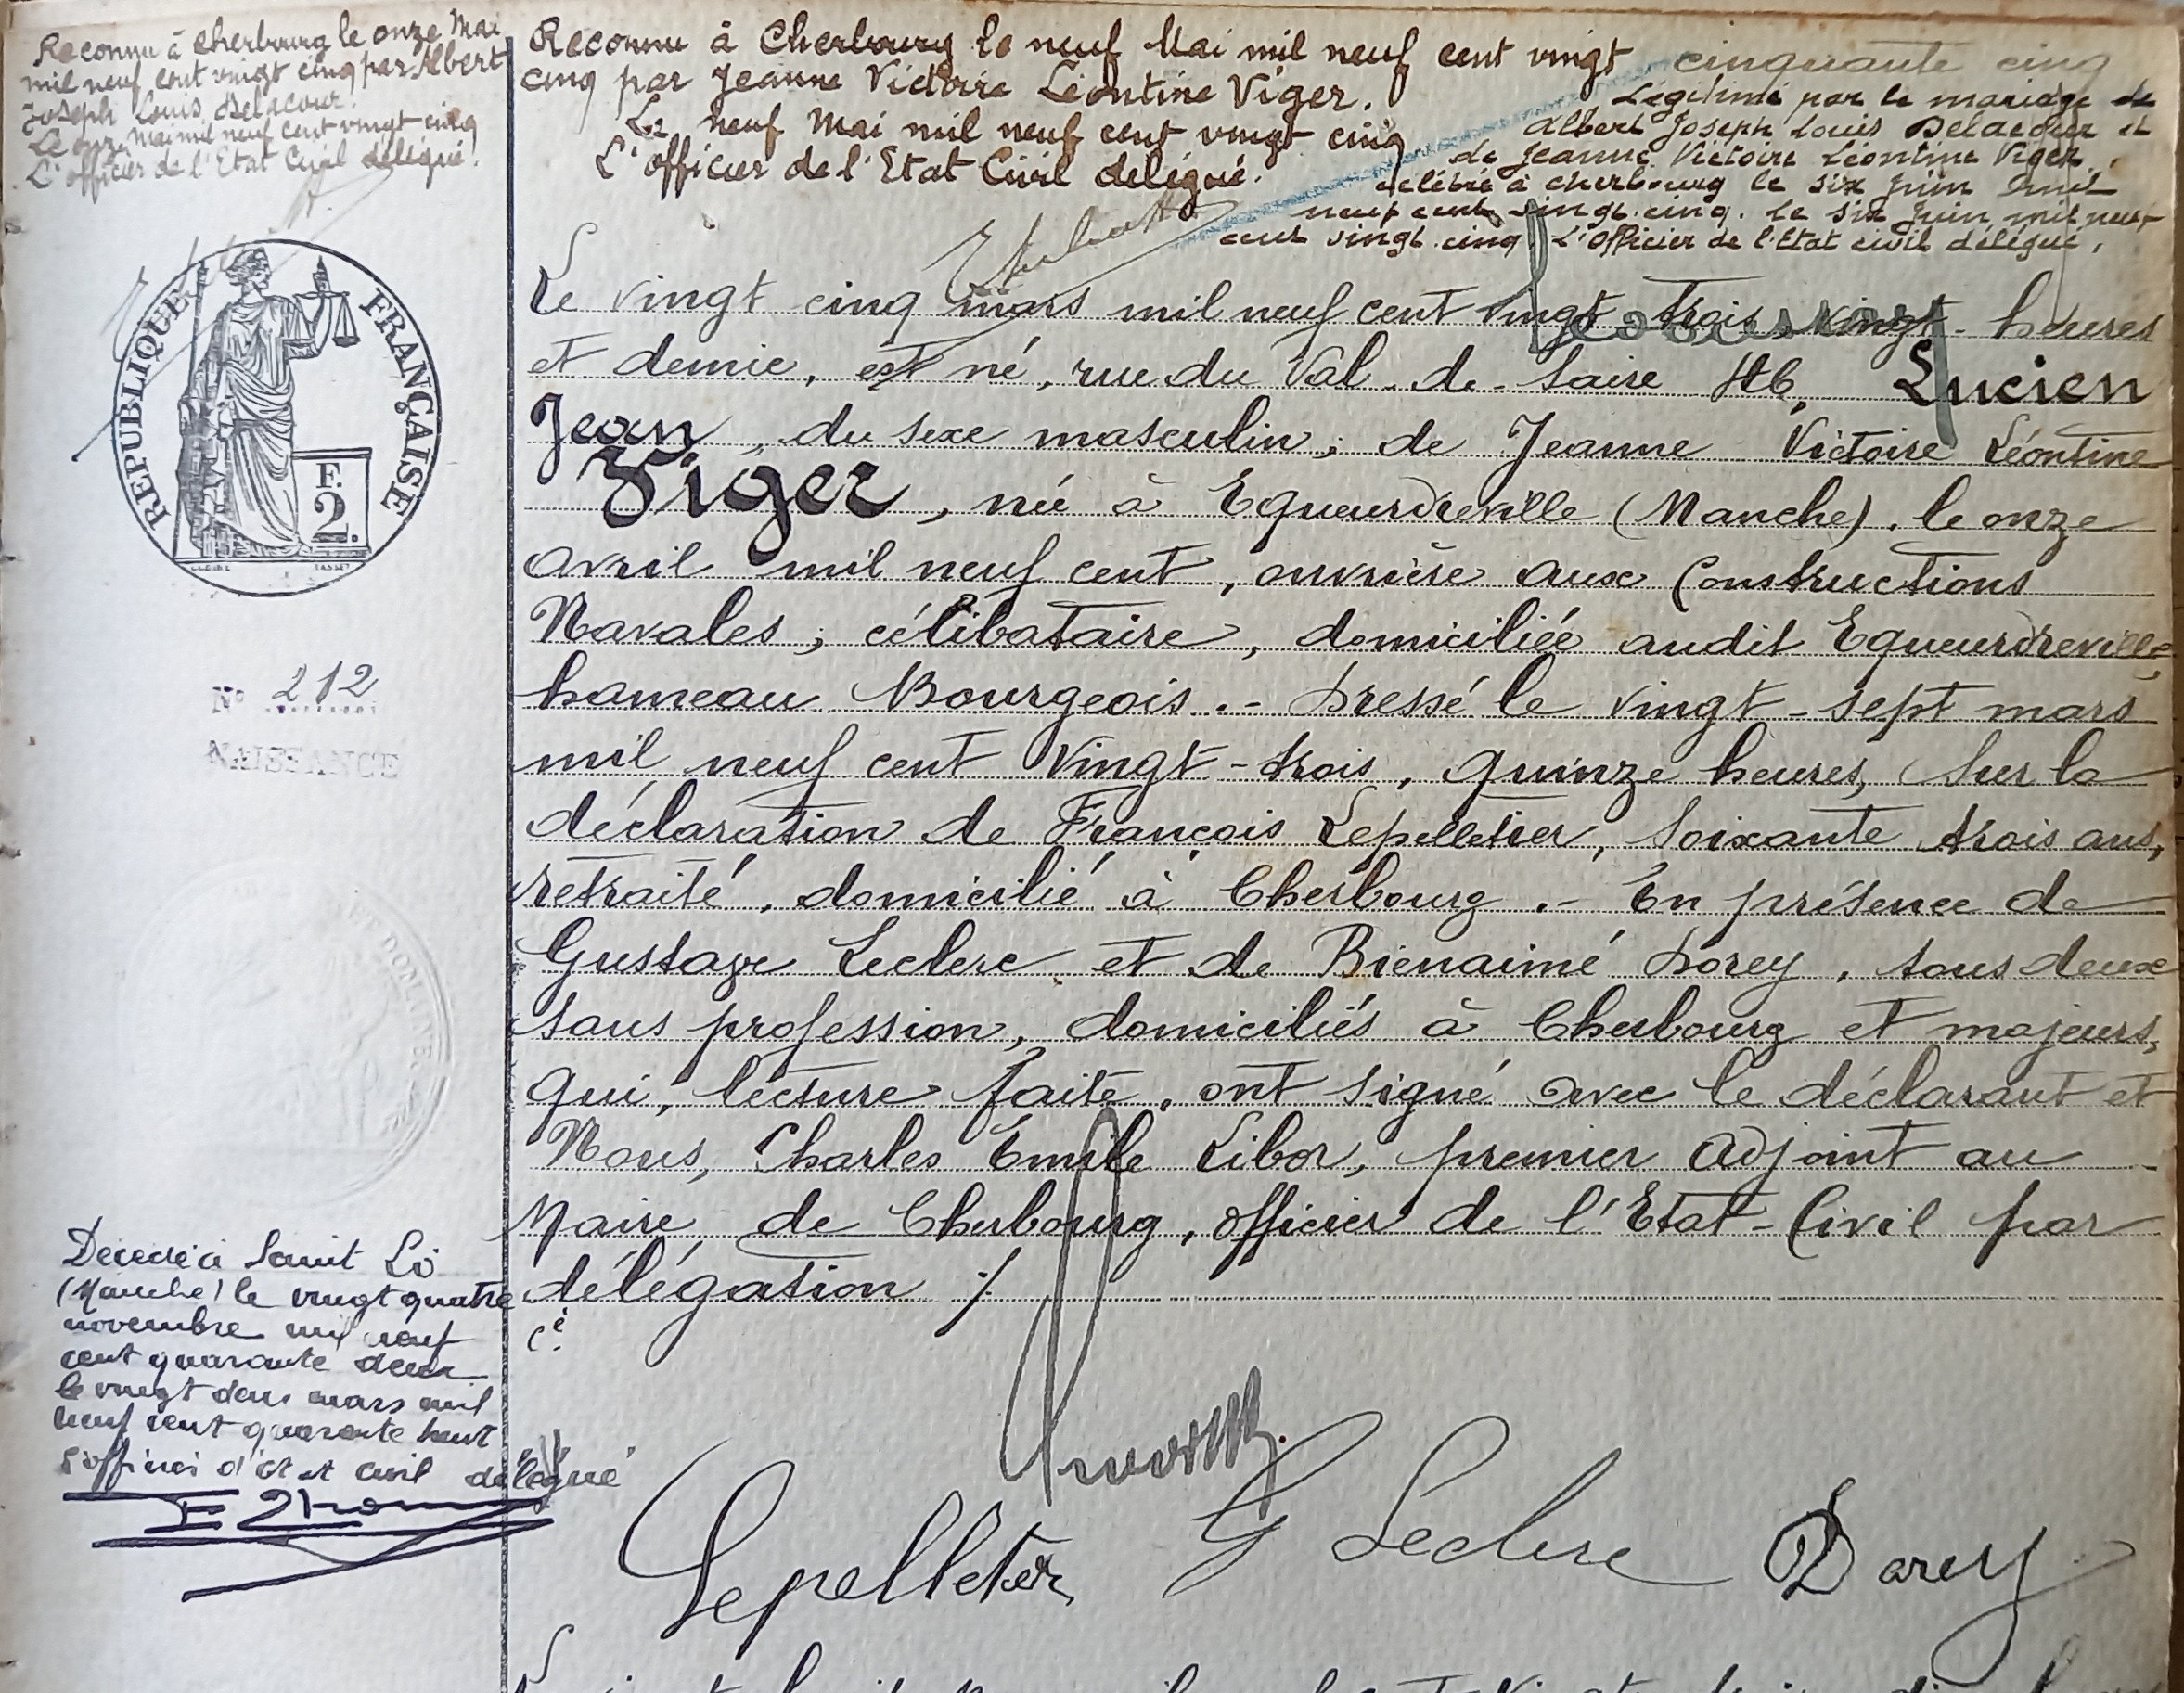 Reconnu à Cherbourg le onze Mai
mil neuf cent vingt cinq par Albert
Joseph Louis Delacour.
Le onze Mai mil neuf cent vingt cinq
L'officier de l'Etat Civil délégué.
Reconnu à Cherbourg le neuf Mai mil neuf cent vingt
cinq par Jeanne Victoire Léontine Viger.
Le neuf Mai mil neuf cent vingt cinq
L'officier de l'Etat Civil délégué.
cinquante cinq
Légitimé par le mariage de
Albert Joseph Louis Delacour et
de Jeanne Victoire Léontine Viger,
célébré à Cherbourg le six Juin mil
neuf cent vingt-cinq. Le six Juin mil neuf
cent vingt-cinq. L'Officier de l'Etat civil délégué,
REPUBLIQUE FRANÇAISE
F.
2.
TASSET
N° 212
NAISSANCE
Le vingt cinq mars mil neuf cent vingt trois, vingt heures
et demie, est né, rue du Val-de-Saire Lucien
Jean, du sexe masculin; de Jeanne Victoire Léontine
Viger, née à Equeurdreville (Manche), le onze
avril mil neuf cent, ouvrière aux Constructions
Navales; célibataire, domiciliée audit Equeurdreville,
hameau Bourgeois.- Dressé le vingt-sept mars
mil neuf cent vingt-trois, quinze heures, sur la
déclaration de François Lepelletier, soixante trois ans,
retraité, domicilié à Cherbourg.- En présence de
Gustave Leclerc et de Bienaimé Dorey, tous deux
sans profession, domiciliés à Cherbourg et majeurs,
qui, lecture faite, ont signé avec le déclarant et
Nous, Charles Émile Libor, premier adjoint au
Maire de Cherbourg, officier de l'Etat-Civil par
délégation ./.
Décédé à Saint Lô
(Manche) le vingt quatre
novembre mil neuf
cent quarante deux
le vingt deux mars mil
neuf cent quarante huit
l'officier d'état civil délégué
Lepelletier G Leclerc Dorey